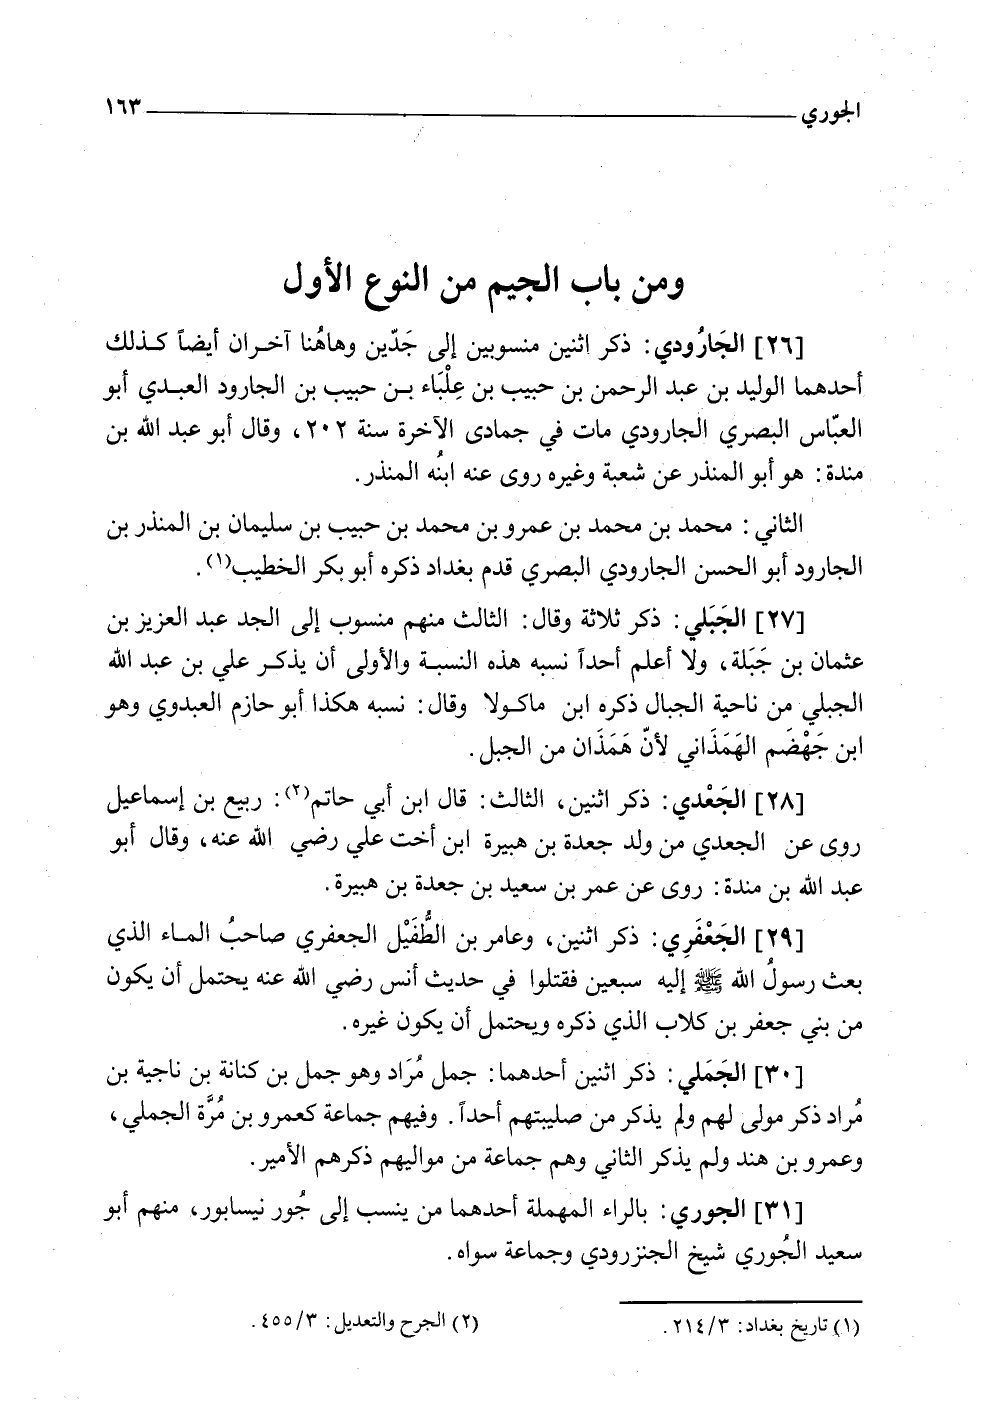 الجوري ١٦٣
ومن باب الجيم من النوع الأول
[٢٦] الجَارُودي: ذكر اثنين منسوبين إلى جَدّين وهاهُنا آخران أيضاً كذلك
أحدهما الوليد بن عبد الرحمن بن حبيب بن عِلْبَاء بن حبيب بن الجارود العبدي أبو
العبّاس البصري الجارودي مات في جمادى الآخرة سنة ٢٠٢، وقال أبو عبد الله بن
مندة: هو أبو المنذر عن شعبة وغيره روى عنه ابنُه المنذر.
الثاني: محمد بن محمد بن عمرو بن محمد بن حبيب بن سليمان بن المنذر بن
الجارود أبو الحسن الجارودي البصري قدم بغداد ذكره أبو بكر الخطيب(١).
[٢٧] الجَبَلي: ذكر ثلاثة وقال: الثالث منهم منسوب إلى الجد عبد العزيز بن
عثمان بن جَبَلة، ولا أعلم أحداً نسبه هذه النسبة والأولى أن يذكر علي بن عبد الله
الجبلي من ناحية الجبال ذكره ابن ماكولا وقال: نسبه هكذا أبو حازم العبدوي وهو
ابن جَهْضَم الهَمَذَاني لأنّ هَمَذَان من الجبل.
[٢٨] الجَعْدي: ذكر اثنين، الثالث: قال ابن أبي حاتم(٢): ربيع بن إسماعيل
روى عن الجعدي من ولد جعدة بن هبيرة ابن أخت علي رضي الله عنه، وقال أبو
عبد الله بن مندة: روى عن عمر بن سعيد بن جعدة بن هبيرة.
[٢٩] الجَعْفَرِي: ذكر اثنين، وعامر بن الطُّفَيْل الجعفري صاحبُ الماء الذي
بعث رسولُ الله ﷺ إليه سبعين فقتلوا في حديث أنس رضي الله عنه يحتمل أن يكون
من بني جعفر بن كلاب الذي ذكره ويحتمل أن يكون غيره.
[٣٠] الجَمَلي: ذكر اثنين أحدهما: جمل مُرَاد وهو جمل بن كنانة بن ناجية بن
مُراد ذكر مولى لهم ولم يذكر من صليبتهم أحداً. وفيهم جماعة كعمرو بن مُرَّة الجملي،
وعمرو بن هند ولم يذكر الثاني وهم جماعة من مواليهم ذكرهم الأمير.
[٣١] الجوري: بالراء المهملة أحدهما من ينسب إلى جُور نيسابور، منهم أبو
سعيد الجُوري شيخ الجنزرودي وجماعة سواه.
(١) تاريخ بغداد: ٢١٤/٣. (٢) الجرح والتعديل: ٤٥٥/٣.